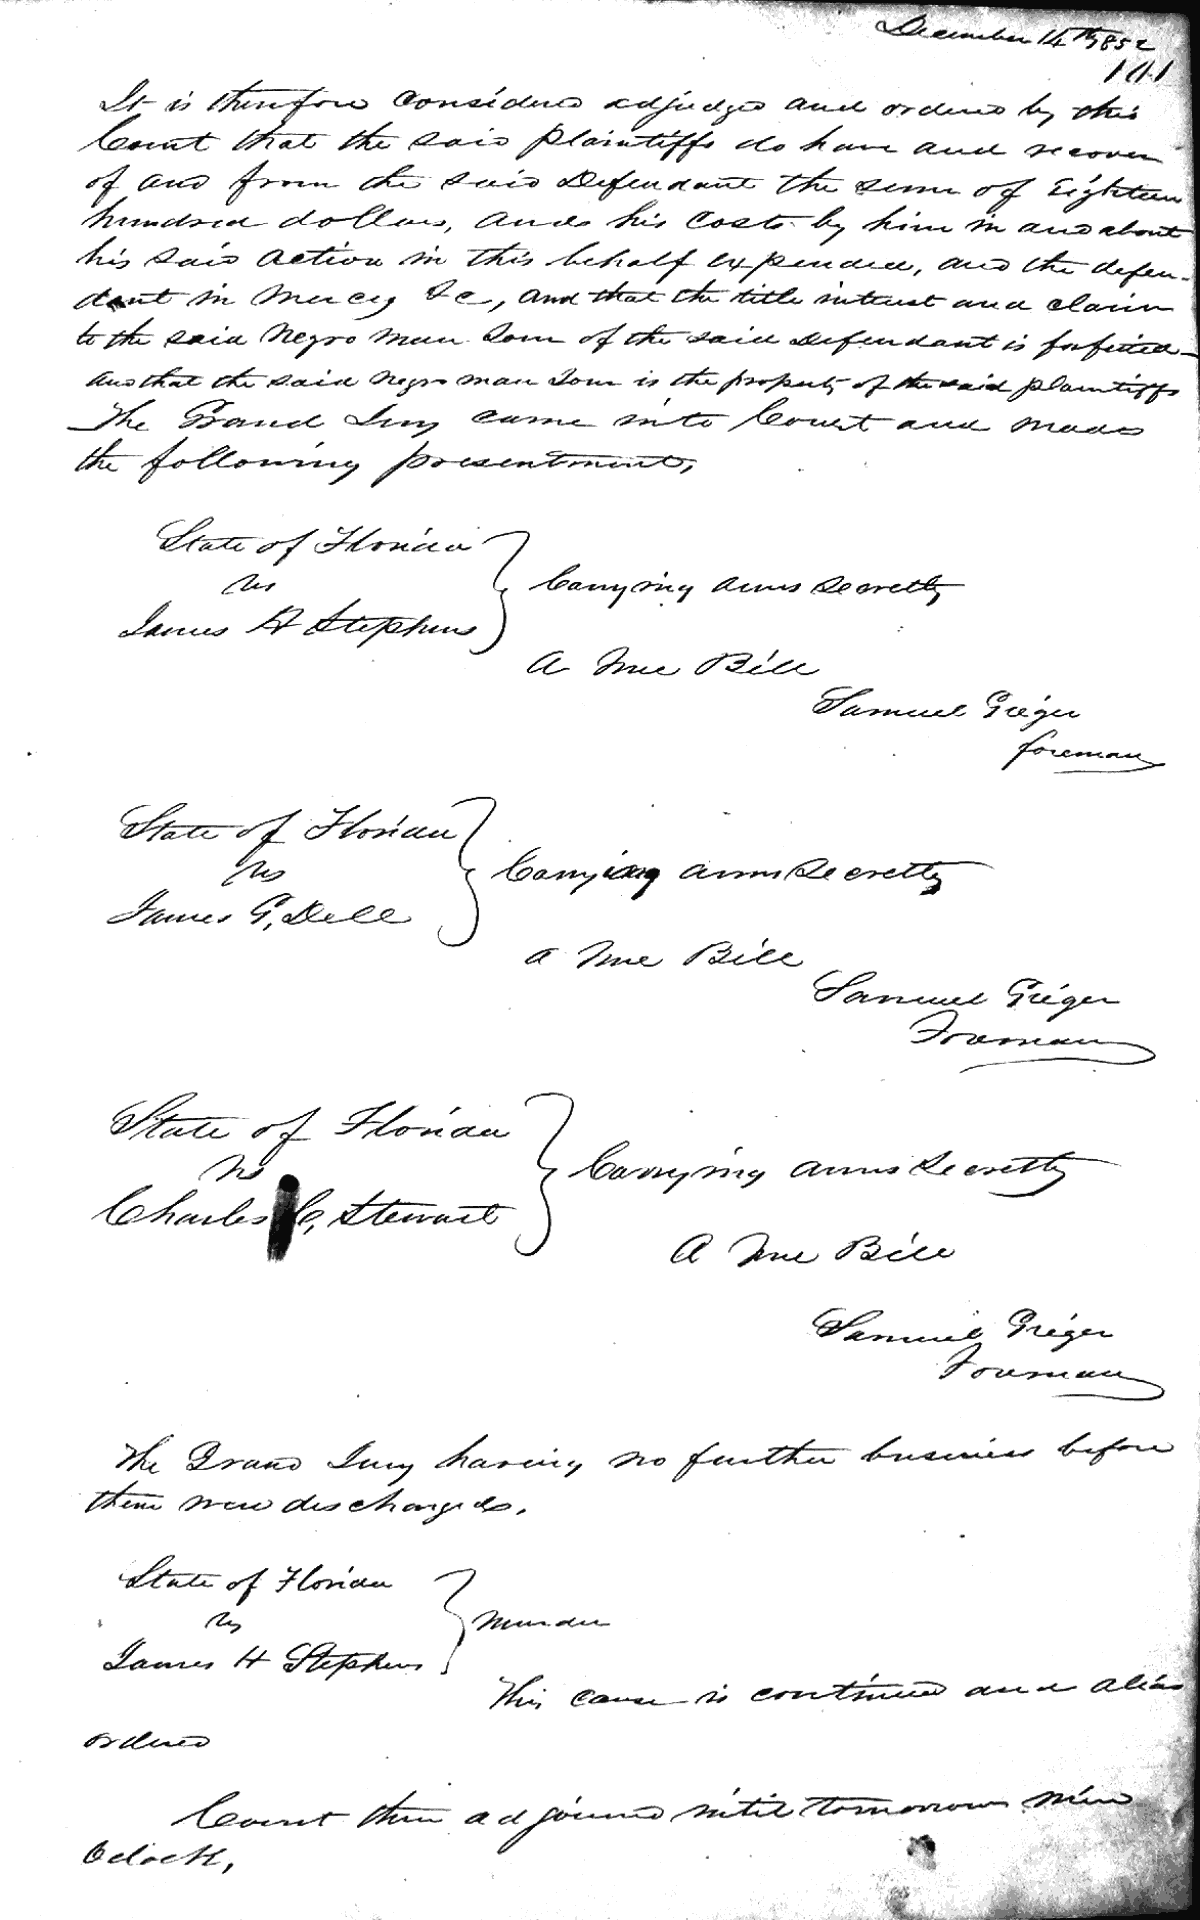 December 14th 1852
141
It is therefore considered adjudged and ordered by this
Court that the said plaintiffs do have and recover
of and from the said Defendant the sum of Eighteen
hundred dollars, and his costs by him in and about
his said action in this behalf expended, and the defen-
dant in mercy &c, and that the title interest and claim
to the said Negro man Tom of the said Defendant is forfeited
and that the said negro man Tom is the property of the said plaintiffs
The Grand Jury came into Court and made
the following presentments,
State of Florida
vs
James H Stephens
Carrying arms secretly
A True Bill
Samuel Geiger
foreman
State of Florida
vs
James G, Dell
Carrying arms secretly
a True Bill
Samuel Geiger
Foreman
State of Florida
vs
Charles C, Stewart
Carrying arms secretly
A True Bill
Samuel Geiger
Foreman
The Grand Jury having no further business before
them were discharged.
State of Florida
vs
James H Stephens
Murder
This cause is continued and alias
ordered
Court then adjourned until tomorrow nine
Oclock,